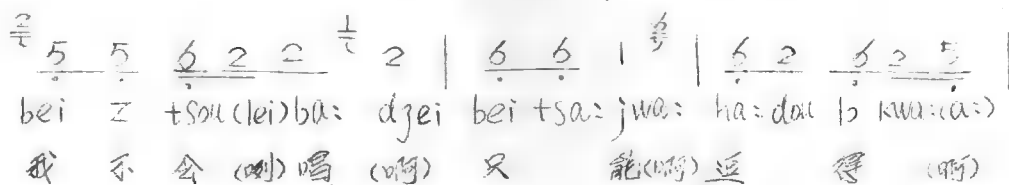 2/i 5 5 6 2 2 1/i 2 | 6 6 1 6 | 6 2 6 2 5 |
bei z tsou (lei) ba: dzei bei tsa: jwa: ha: dau b kwa: (a:)
我 不 会 (咧) 唱 (啊) 只 能(啊) 逗 得 (啊)